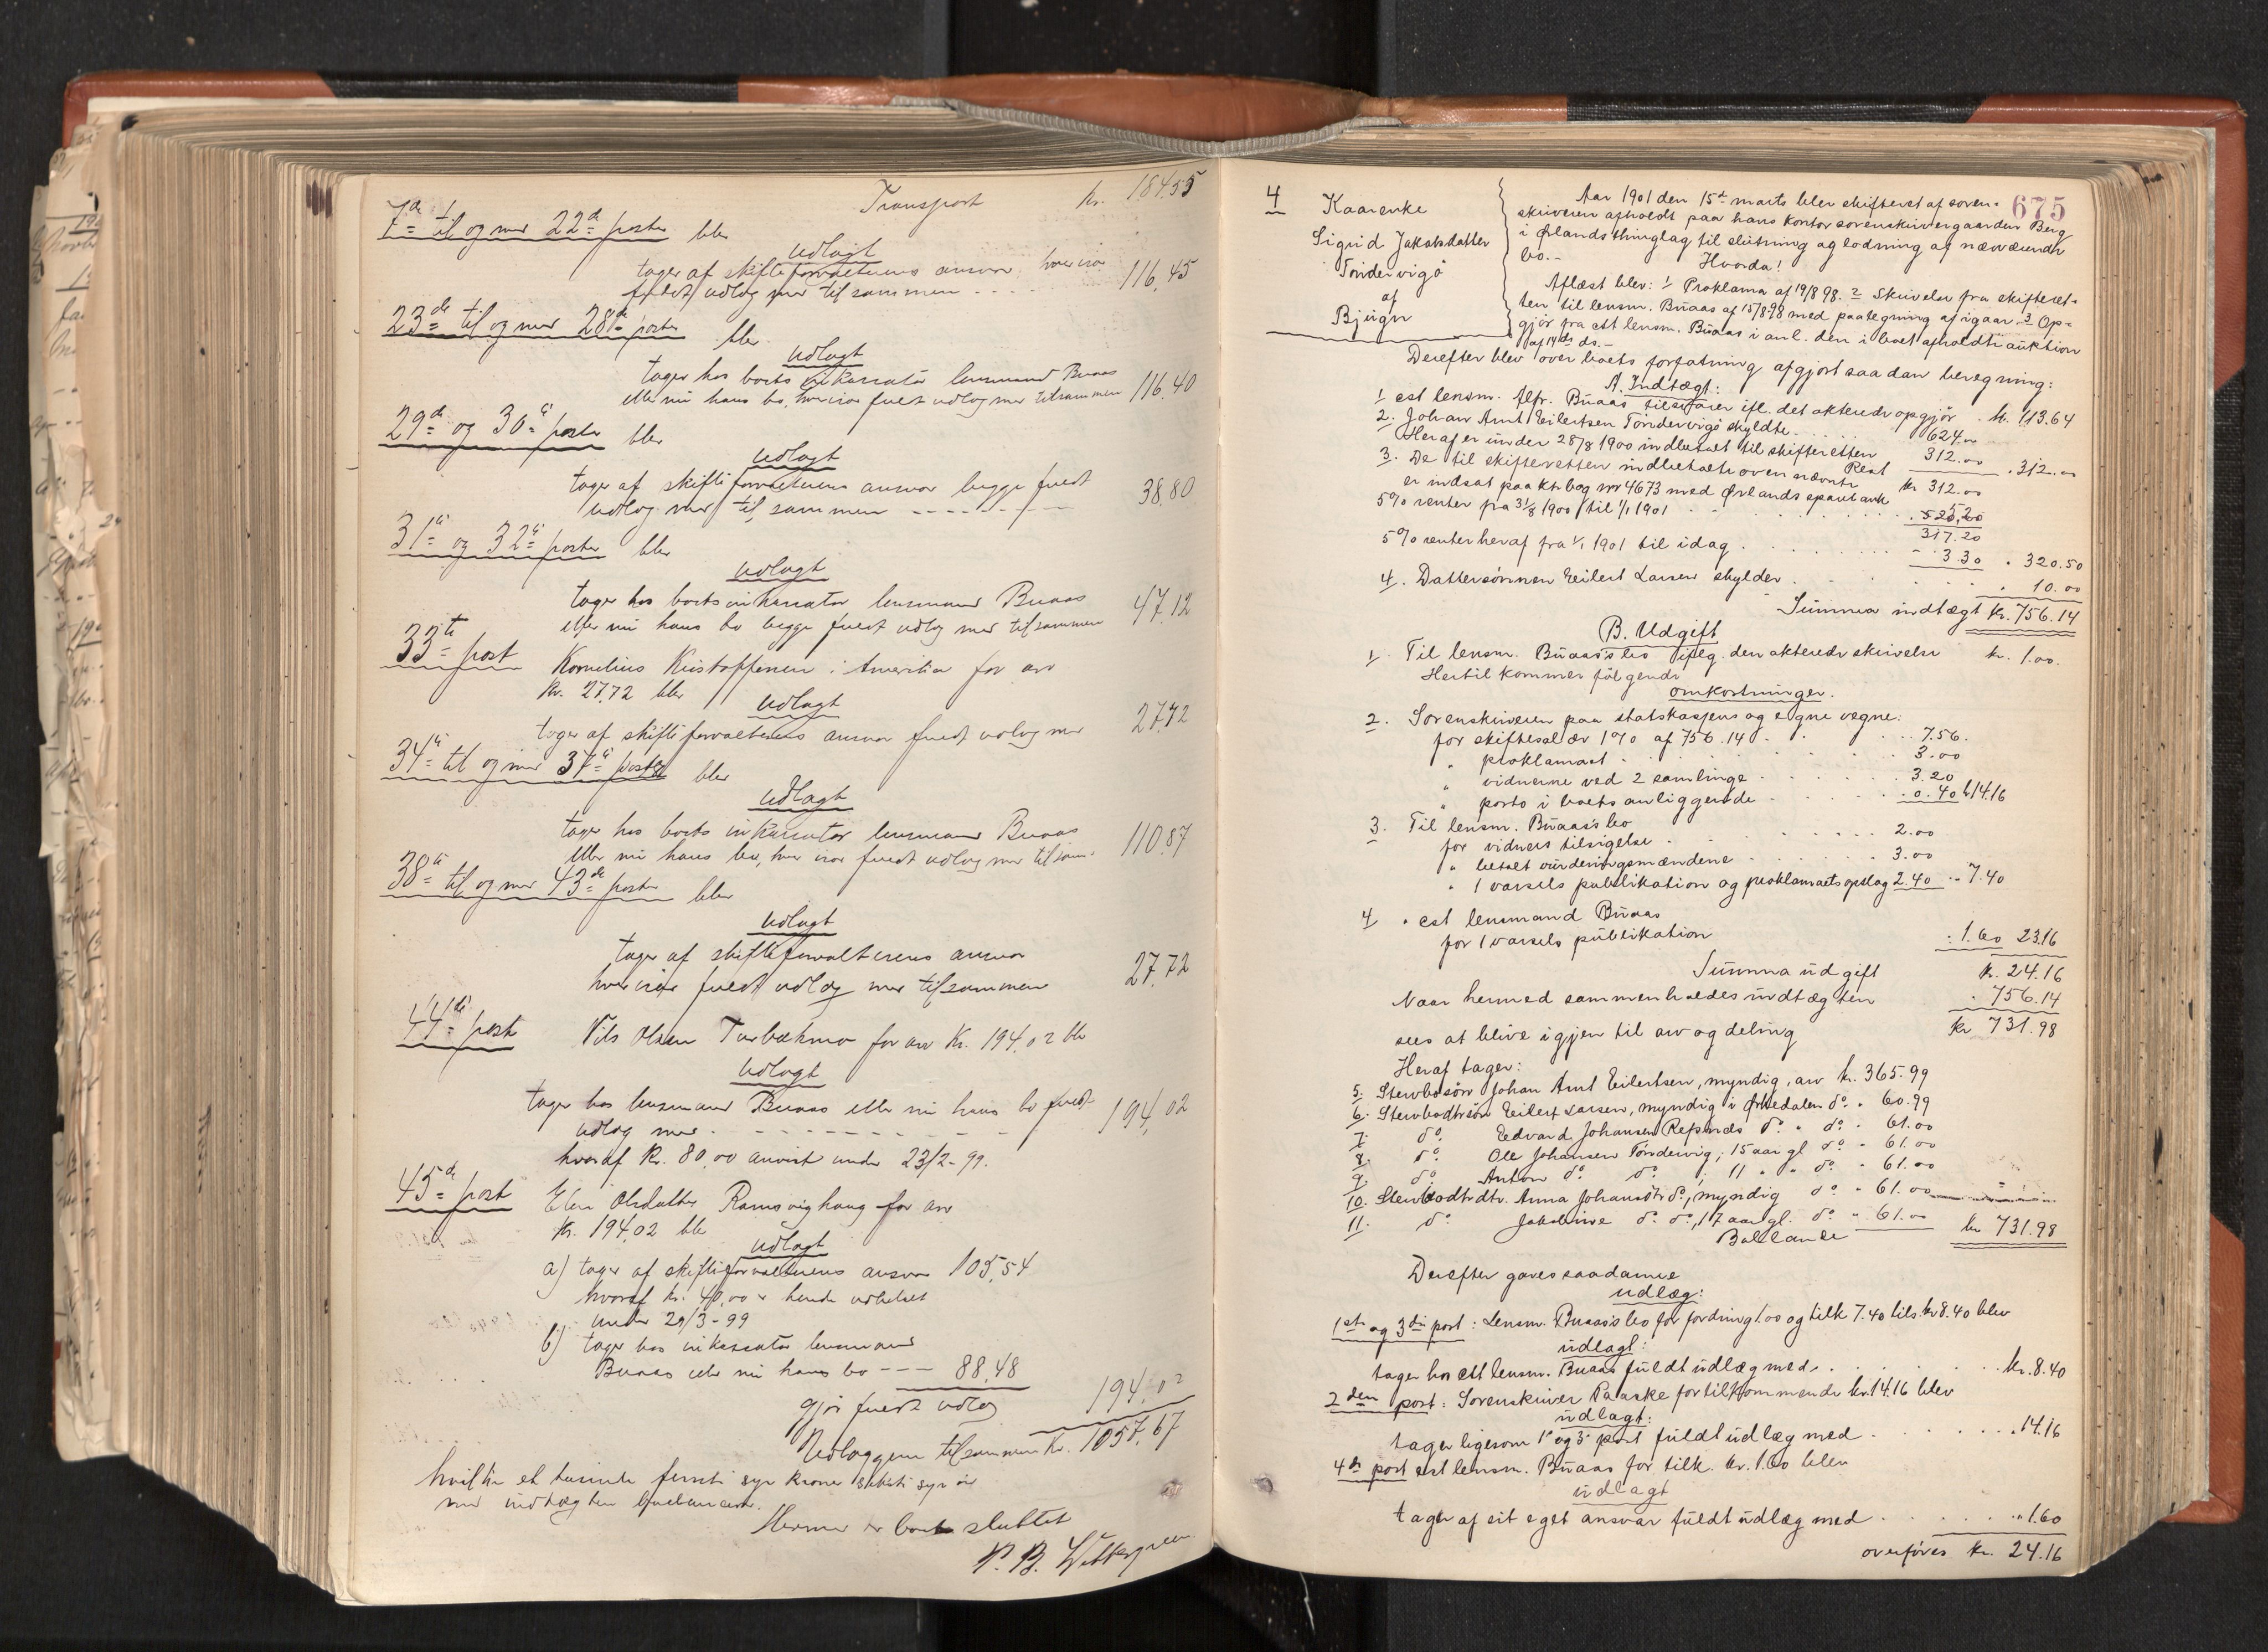 Transport kr. 184.55
7de til og med 22de poster blev
udlagt
tager af skifteforvalterens ansvar hver især
fuldt udlæg med tilsammen 116,45
23de til og med 28de poster blev
udlagt
tager hos boets inkassator lensmand Buaas
eller nu hans bo, hver især fuldt udlæg med tilsammen 116.40
29de og 30te poster blev
udlagt
tager af skifteforvalterens ansvar begge fuldt
udlæg med tilsammen - - - - - - 38,80
31te og 32te poster blev
udlagt
tager hos boets inkassator lensmand Buaas
eller nu hans bo begge fuldt udlæg med tilsammen 47.12
33te post Kornelius Kristoffersen i Amerika for arv
kr. 27.72 blev
udlagt
tager af skifteforvalterens ansvar fuldt udlæg med 27.72
34te til og med 37te poster blev
udlagt
tager hos boets inkassator lensmand Buaas
eller nu hans bo, hver især fuldt udlæg med tilsam. 110.87
38te til og med 43de poster blev
udlagt
tager af skifteforvalterens ansvar
hver især fuldt udlæg med tilsammen 27.72
44de post Nils Olsen Turbækmo for arv kr. 194,02 blev
udlagt
tager hos lensmand Buaas eller nu hans bo fuldt
udlæg med - - - - - - 194,02
hvoraf kr. 80,00 anvist under 23/2-99.
45de post Elen Olsdatter Ramsvighaug for arv
kr. 194,02 blev
udlagt
a) tager af skifteforvalterens ansvar 105,54
hvoraf kr. 40,00 er hende udbetalt
under 29/3-99
b) tager hos inkassator lensmand
Buaas eller nu hans bo --- 88,48
gjør fuldt udlæg 194,02
Udlæggene tilsammen kr. 1057,67
hvilke et tusinde femti syv kroner seksti syv øre
med indtægten balancerer.
Hermed er boet sluttet
P. B. Wettergreen
675
4 Kaarenke
Sigrid Jakobsdatter
Tøndervigø
af
Bjugn
Aar 1901 den 15de marts blev skifteret af soren-
skriveren afholdt paa hans kontor sorenskrivergaarden Berg
i Ørlands thinglag til slutning og lodning af nærværende
bo.- Hvorda!
Aflæst blev: 1/ Proklama af 19/8 98. 2/ Skrivelse fra skifteret-
ten til lensm. Buaas af 15/8 98 med paategning af igaar. 3 Op-
gjør fra cst lensm. Buaas i anl. den i boet afholdte auktion
af 14de ds.-
Derefter blev over boets forfatning afgjort saadan beregning:
A. Indtægt:
1 cst lensm. Alfr. Buaas tilsvarer ifl. det akterede opgjør . kr. 113.64
2. Johan Arnt Eilertsen Tøndervigø skyldte . . . . 624.00
Heraf er under 28/8 1900 indbetalt til skifteretten 312.00
Rest . 312.00
3. De til skifteretten indbetalte ovennævnte kr 312.00
er indsat paa ktrbog nr 4673 med Ørlands sparebank
5% renter fra 31/8 1900 til 1/1 1901 . . . . 5.20
317.20
5% renter heraf fra 1/1 1901 til idag . . . . 3.30 . 320.50
4. Dattersønnen Eilert Larsen skylder . . . . 10.00
Summa indtægt kr. 756.14
B. Udgift
1. Til lensm. Buaas's bo ifølg. den akterede skrivelse kr. 1.00.
Hertil kommer følgende
omkostninger.
2. Sorenskriveren paa statskassens og egne vegne:
for skiftesalær 1% af 756.14 . . . 7.56.
" proklamaet . . . 3.00
" vidnerne ved 2 samlinge . . . 3.20
" porto i boets anliggende . . . 0.40 kr 14.16
3. Til lensm. Buaas's bo
for vidners tilsigelse . . . 2.00
" betalt vurderingsmændene . . . 3.00
" 1 varsels publikation og proklamaets opslag 2.40 . - 7.40
4 . cst lensmand Buaas
for 1 varsels publikation : 1.60 23.16
Summa udgift kr. 24.16
Naar hermed sammenholdes indtægten . 756.14
sees at blive igjen til arv og deling kr 731.98
Heraf tager:
5. Stervbosøn Johan Arnt Eilertsen, myndig, arv kr. 365.99
6. Stervbodtrsøn Eilert Larsen, myndig i Ørkedalen do. " 60.99
7. do. Edvard Johansen Refsnes do. " do. " 61.00
8. do. Ole Johansen Tøndervig, 15 aar gl do. " 61.00
9. do. Anton do. do., 11 " " do. " 61.00
10. Stervbodtrdtr. Anna Johansdtr do., myndig do. " 61.00
11. do. Jakobine do. do., 17 aar gl. do. " 61.00 kr 731.98
Ballance
Derefter gaves saadanne
udlæg:
1ste og 3die post: Lensm. Buaas's bo for fordring 1.00 og tilk 7.40 tils. kr 8.40 blev
udlagt:
tager hos cst lensm. Buaas fuldt udlæg med . . . kr. 8.40
2den post: Sorenskriver Paaske for tilkommende kr. 14.16 blev
udlagt:
tager ligesom 1ste og 3die post fuldt udlæg med . . . 14.16
4de post cst lensm. Buaas for tilk. kr. 1.60 blev
udlagt
tager af sit eget ansvar fuldt udlæg med . . . " 1.60
overføres kr. 24.16